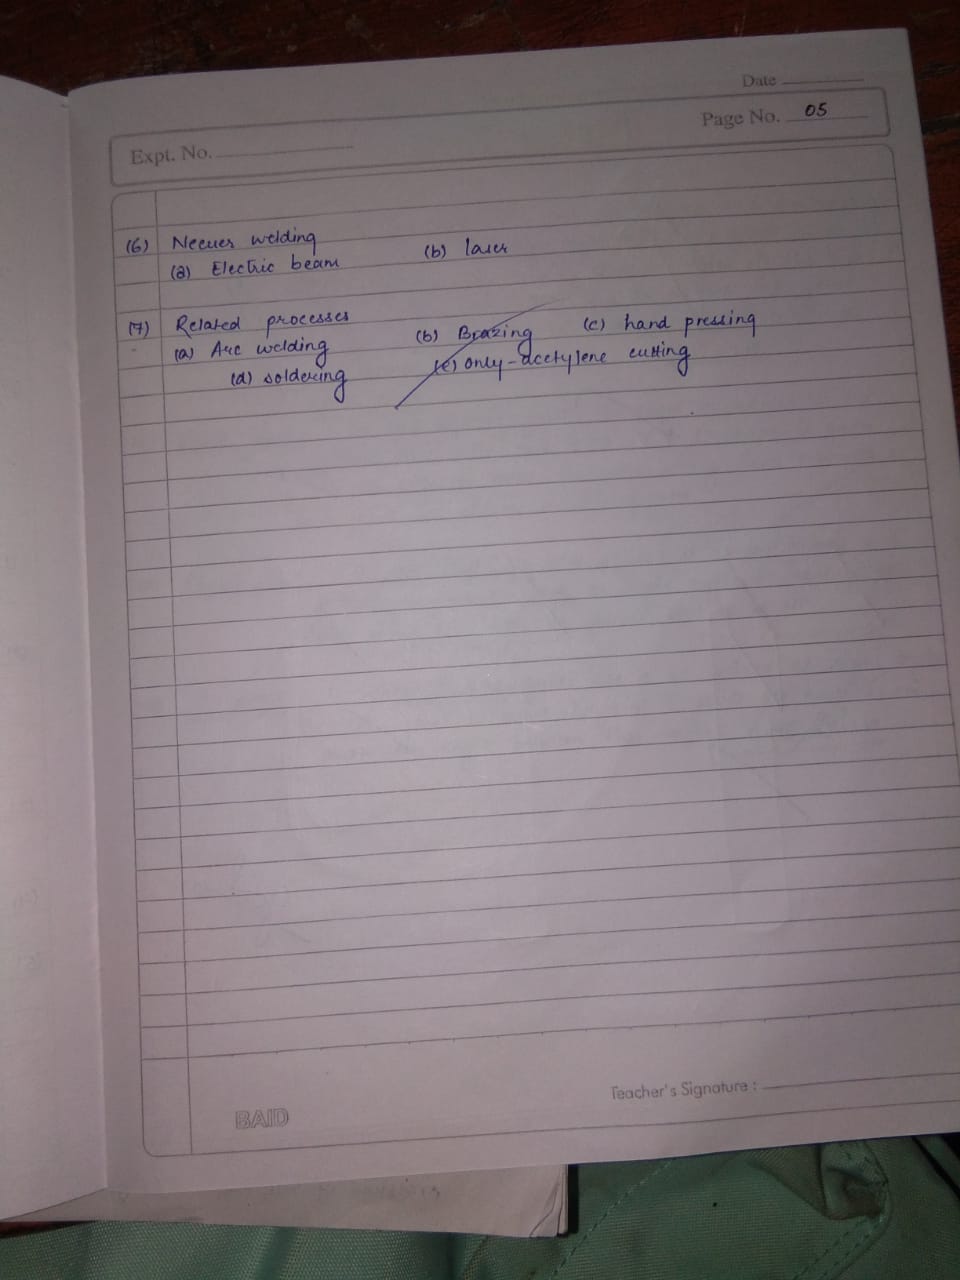 Date
Page No. 05
Expt. No.
(6) Neewer welding
(a) Electric beam (b) laser
(7) Related processes
(a) Arc welding (b) Brazing (c) hand pressing
(d) soldering (e) only-acetylene cutting
Teacher's Signature :
BAID